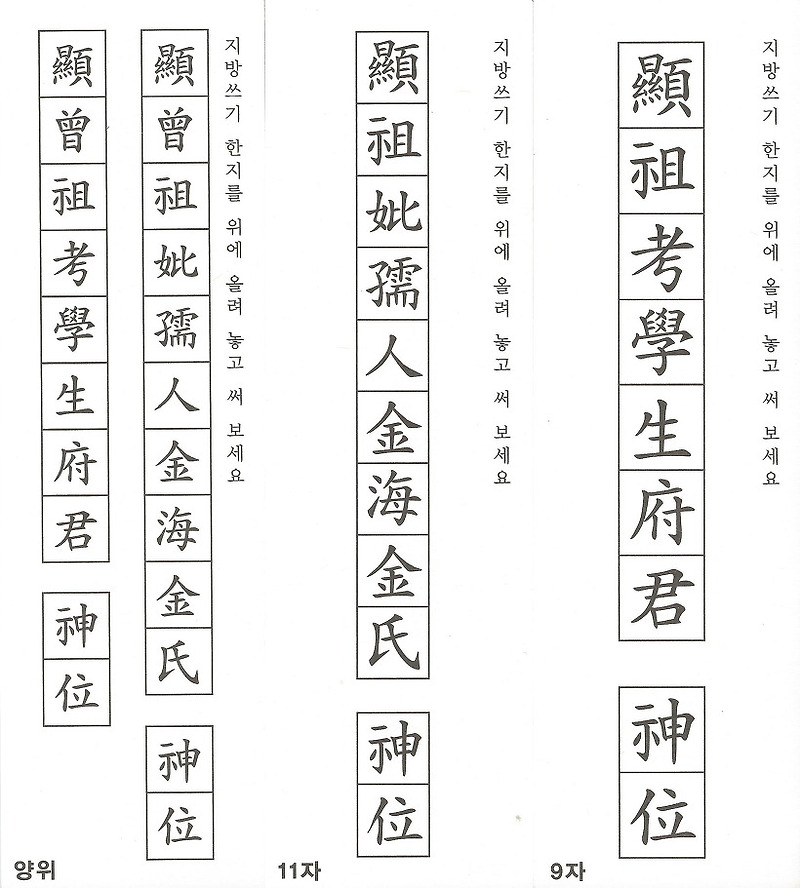 顯曾祖考學生府君 神位
顯曾祖妣孺人金海金氏 神位
지방쓰기 한지를 위에 올려 놓고 써 보세요
양위
顯祖妣孺人金海金氏 神位
지방쓰기 한지를 위에 올려 놓고 써 보세요
11자
顯祖考學生府君 神位
지방쓰기 한지를 위에 올려 놓고 써 보세요
9자